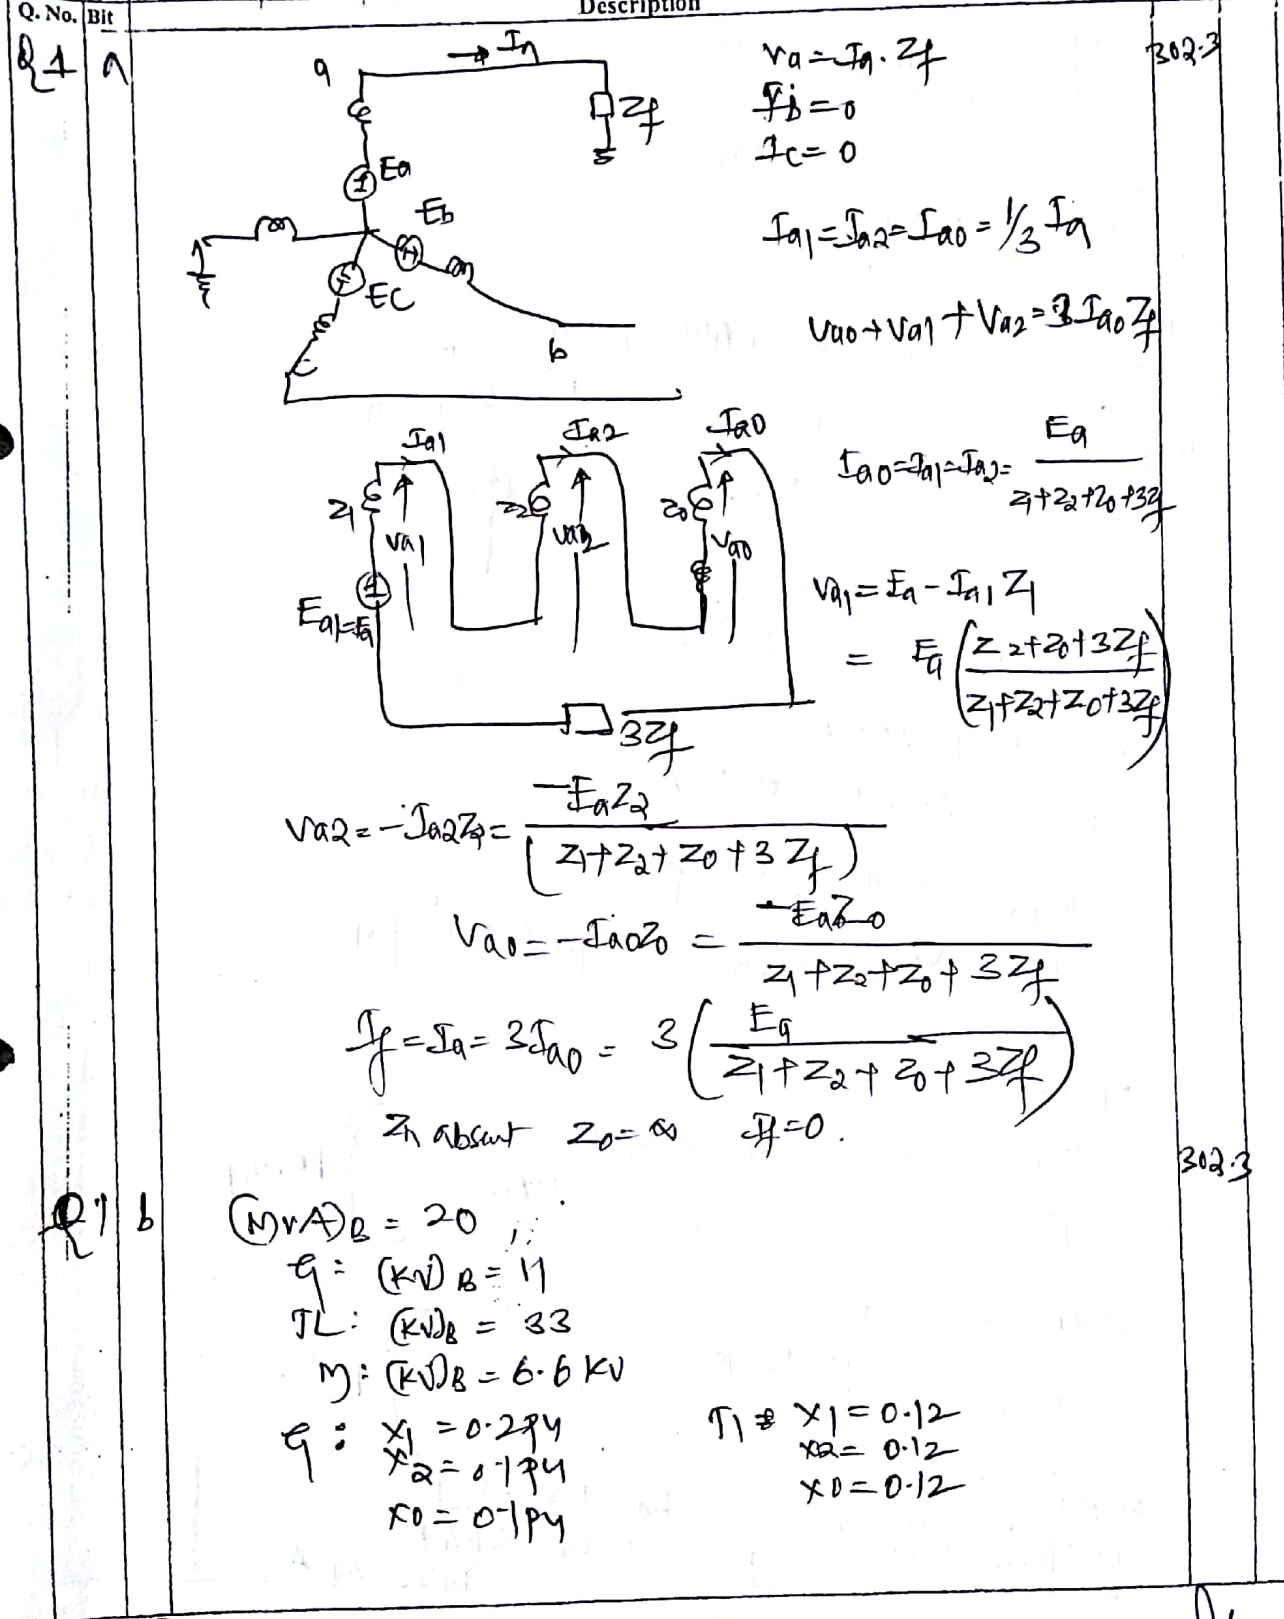 Q. No. Bit Description
Q1 a
a
Ia
Zf
Ea
Eb
Ec
b
c
Va = Ia . Zf
Ib = 0
Ic = 0
302.3
Ia1 = Ia2 = Ia0 = 1/3 Ia
Va0 + Va1 + Va2 = 3 Ia0 Zf
Ia1 Ia2 Ia0
Z1 Z2 Z0
Va1 Va2 Va0
Ea1 = Ea
3Zf
Ia0 = Ia1 = Ia2 = Ea / Z1 + Z2 + Z0 + 3Zf
Va1 = Ea - Ia1 Z1
= Ea (Z2 + Z0 + 3Zf / Z1 + Z2 + Z0 + 3Zf)
Va2 = - Ia2 Z2 = -Ea Z2 / (Z1 + Z2 + Z0 + 3 Zf)
Va0 = - Ia0 Z0 = -Ea Z0 / Z1 + Z2 + Z0 + 3 Zf
If = Ia = 3 Ia0 = 3 (Ea / Z1 + Z2 + Z0 + 3Zf)
Zn absent Z0 = ∞ If = 0.
302.3
Q1 b
(MVA)B = 20
G : (KV)B = 11
TL : (KV)B = 33
M : (KV)B = 6.6 KV
G : X1 = 0.2 pu
X2 = 0.1 pu
X0 = 0.1 pu
T1 : X1 = 0.12
X2 = 0.12
X0 = 0.12